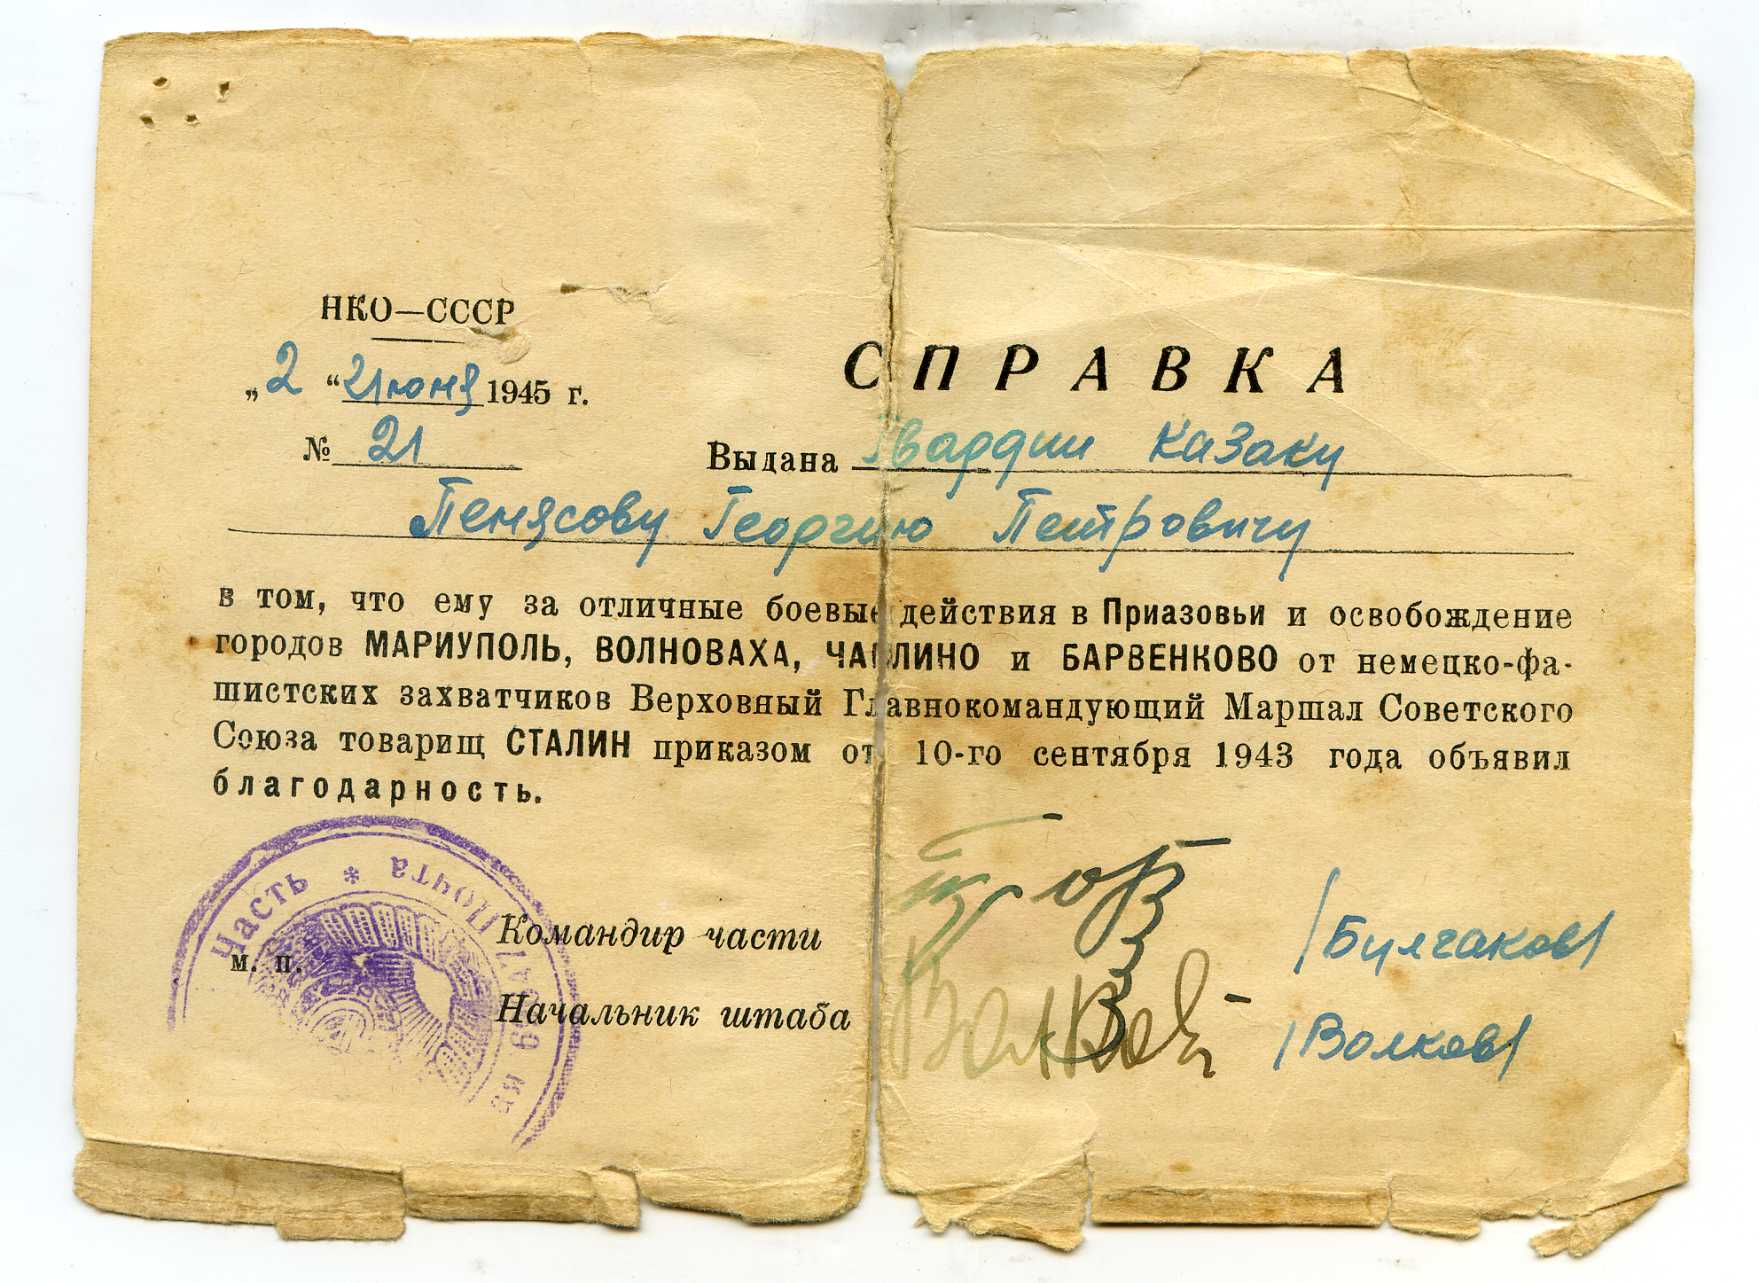 НКО—СССР
„2“ июня 1945 г.
№ 21
СПРАВКА
Выдана Гвардии казаку
Пенясову Георгию Петровичу
в том, что ему за отличные боевые действия в Приазовьи и освобождение
городов МАРИУПОЛЬ, ВОЛНОВАХА, ЧАПЛИНО и БАРВЕНКОВО от немецко-фа-
шистских захватчиков Верховный Главнокомандующий Маршал Советского
Союза товарищ СТАЛИН приказом от 10-го сентября 1943 года объявил
благодарность.
Часть * Почта
м. п.
Командир части /Булгаков/
Начальник штаба Волков /Волков/